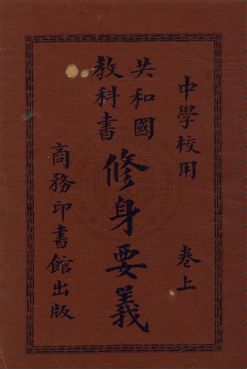 中學校用
卷上
共和國
教科書
修身要義
商務印書館出版